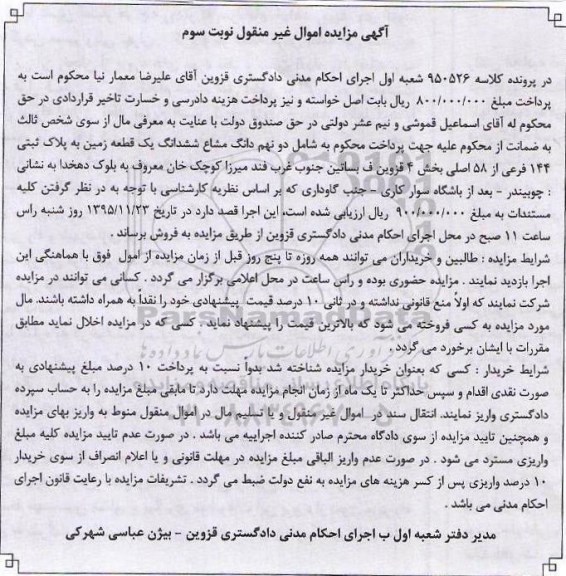 آگهی مزایده اموال غیر منقول نوبت سوم
در پرونده کلاسه ۹۵۰۵۲۶ شعبه اول اجرای احکام مدنی دادگستری قزوین آقای علیرضا معمار نیا محکوم است به
پرداخت مبلغ ۸۰۰/۰۰۰/۰۰۰ ریال بابت اصل خواسته و نیز پرداخت هزینه دادرسی و خسارت تاخیر قراردادی در حق
محکوم له آقای اسماعیل قموشی و نیم عشر دولتی در حق صندوق دولت با عنایت به معرفی مال از سوی شخص ثالث
به ضمانت از محکوم علیه جهت پرداخت محکوم به شامل دو نهم دانگ مشاع ششدانگ یک قطعه زمین به پلاک ثبتی
۱۴۴ فرعی از ۵۸ اصلی بخش ۴ قزوین ک بساتین جنوب غرب فند میرزا کوچک خان معروف به بلوک دهخدا به نشانی
: چوبیندر - بعد از باشگاه سوار کاری - جنب گاوداری که بر اساس نظریه کارشناسی با توجه به در نظر گرفتن کلیه
مستندات به مبلغ ۹۰۰/۰۰۰/۰۰۰ ریال ارزیابی شده است، این اجرا قصد دارد در تاریخ ۱۳۹۵/۱۱/۲۳ روز شنبه راس
ساعت ۱۱ صبح در محل اجرای احکام مدنی دادگستری قزوین از طریق مزایده به فروش برساند .
شرایط مزایده : طالبین و خریداران می توانند همه روزه تا پنج روز قبل از زمان مزایده از اموال فوق با هماهنگی این
اجرا بازدید نمایند . مزایده حضوری بوده و راس ساعت در محل اعلامی برگزار می گردد . کسانی می توانند در مزایده
شرکت نمایند که اولاً منع قانونی نداشته و در ثانی ۱۰ درصد قیمت پیشنهادی خود را نقداً به همراه داشته باشند. مال
مورد مزایده به کسی فروخته می شود که بالاترین قیمت را پیشنهاد نماید . کسی که در مزایده اخلال نماید مطابق
مقررات با ایشان برخورد می گردد
شرایط خریدار : کسی که بعنوان خریدار مزایده شناخته شد بدواً نسبت به پرداخت ۱۰ درصد مبلغ پیشنهادی به
صورت نقدی اقدام و سپس حداکثر تا یک ماه از زمان انجام مزایده مهلت دارد تا مابقی مبلغ مزایده را به حساب سپرده
دادگستری واریز نمایند. انتقال سند در اموال غیر منقول و یا تسلیم مال در اموال منقول منوط به واریز بهای مزایده
و همچنین تایید مزایده از سوی دادگاه محترم صادر کننده اجراییه می باشد . در صورت عدم تایید مزایده کلیه مبلغ
واریزی مسترد می شود . در صورت عدم واریز الباقی مبلغ مزایده در مهلت قانونی و یا اعلام انصراف از سوی خریدار
۱۰ درصد واریزی پس از کسر هزینه های مزایده به نفع دولت ضبط می گردد . تشریفات مزایده با رعایت قانون اجرای
احکام مدنی می باشد .
مدیر دفتر شعبه اول ب اجرای احکام مدنی دادگستری قزوین - بیژن عباسی شهرکی
ParsNamadData